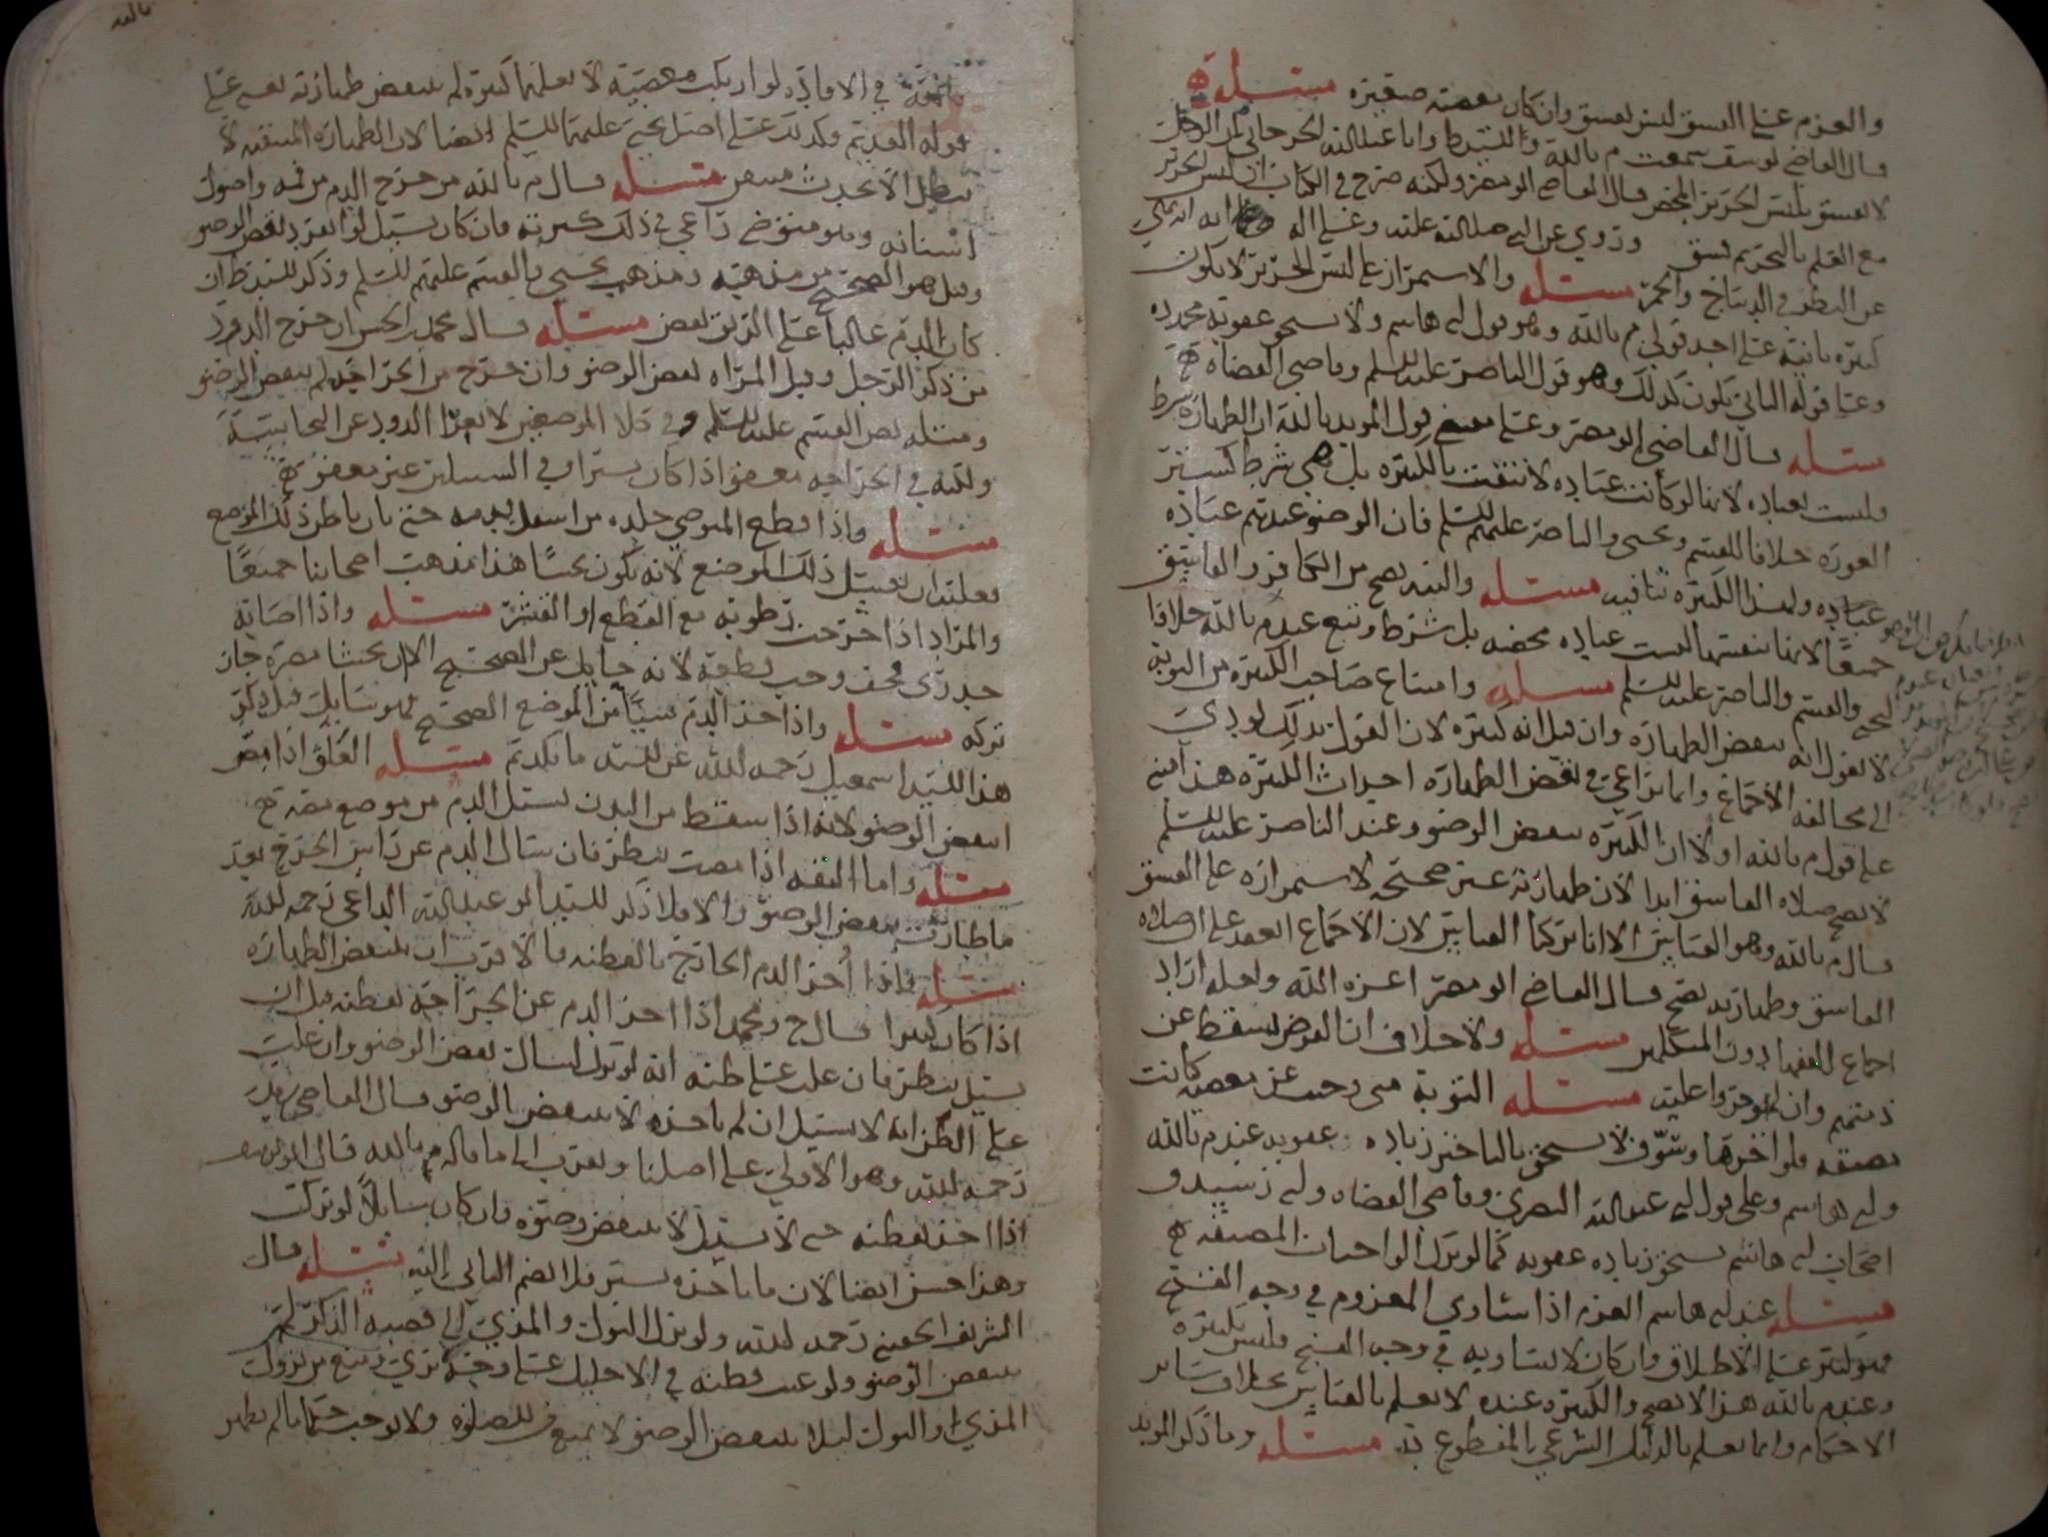 والعزم على الفسق ليس بفسق وان كان معصية صغيره مسئلة
قال القاضي يوسف سمعت م بالله والسيد ط وابا عبدالله الجرجاني ان الرجل
لا يفسق بلبس الحرير المحض قال القاضي ابو مضر ولكنه صرح في الكتاب ان لبس الحرير
مع العلم بالتحريم فسق وروي عن النبي صلى الله عليه وعلى اله انه نهى
عن في الديباج والخمر مسئله والاستمرار على لبس الحرير لا يكون
كبيره ثانية على احد قولي م بالله وهو قول ابي هاشم ولا يستحق عقوبة مجدده
وعلى قوله الثاني يكون كذلك وهو قول الناصر عليه السلم وقاضي القضاه
مسئله قال القاضي ابو مضر وعلى قول المويد بالله ان الطهارة شرط
وليست بعباده لانها لو كانت عباده لانتفت بالكبيره بل هي شرط كستر
العورة خلافا للقسم ويحيى والناصر عليهم السلم فان الوضو عندهم عباده
عباده ولهذا الكبيره تنافيه مسئله والتيمم يصح من الكافر والفاسق
جميعًا لانها بنفسها ليست عباده محضه بل شرط وتبع عند م بالله خلافا
ليحيى والقسم والناصر عليه السلم مسئله وامتناع صاحب الكبيره من التوبة
لا نقول انه ينقض الطهاره وان قيل انه كبيره لان القول بذلك يودي
الى مخالفة الاجماع وانما نراعي في نقض الطهاره احداث الكبيره هذا مبني
على قول م بالله اولا ان الكبيره ينقض الوضو وعند الناصر عليه السلم
لا تصح صلاه الفاسق ابدا لان طهارته غير صحيحه لاستمراره على الفسق
قال م بالله وهو القياس الا انا تركنا القياس لان الاجماع انعقد على ان صلاه
الفاسق وطهارته تصح قال القاضي ابو مضر اعزه الله ولعله اراد
اجماع الفقها دون المتكلمين مسئله ولا خلاف ان الفرض يسقط عن
ذمتهم وان لم يوجروا عليه مسئله التوبة متى وجبت عن معصيه كانت
مضيقه ولو اخرها وسوّف لا يستحق بالتاخير زياده عقوبه عند م بالله
وابي هاشم وعلى قول ابي عبدالله البصري وقاضي القضاه وابي رشيد و
اصحاب ابي هاشم يستحق زياده عقوبه كما لو ترك الواجبات المضيقه
مسئله عند ابي هاشم العزم اذا ساوى المعزوم في وجه القبح
فهو كبير على الاطلاق وان كان لا يساويه في وجه القبح فليس بكبيره
وعند م بالله هذا لا يصح والكبيره عنده لا يعلم بالقياس بخلاف سائر
الاحكام وانما يعلم بالدليل الشرعي المقطوع به مسئله وما ذكر المويد
بالله في الافاده لو ارتكب معصية لا يعلمها كبيره لم ينقض طهارته يعني على
قوله القديم وكذلك على اصل يحيى عليه السلم ايضا لان الطهارة المتيقنه لا
يبطل الا بحدث متيقن مسئله قال م بالله من خرج الدم من فمه واصول
اسنانه وهو متوضي راعى في ذلك كثرته فان كان يسيل لو انفرد نقض الوضو
وقيل هو الصحيح من مذهبه ومذهب يحيى والقسم عليهم السلم وذكر السيد ط ان
كان الدم غالبا على الريق نقض مسئله قال محمد بن الحسن ان خرج الدود
من ذكر الرجل وقبل المراه نقض الوضو وان خرج من الجراحة لم ينقض الوضو
ومثله نص القسم عليه السلم وفي كلا الموضعين لا يعرّا الدود عن النجاسة
ولكنه في الجراحه معفو اذا كان يسيرا وفي السبيلين غير معفو
مسئله واذا قطع المتوضي جلده من اسفل قدمه حتى بان باطن ذلك الموضع
فعليه ان يغسل ذلك الموضع لانه يكون نجسًا هذا مذهب اصحابنا جميعًا
والمراد اذا خرجت رطوبه مع القطع او القشر مسئله واذا اصابه
جدري فجف وجب قطعه لانه حايل عن الصحيح الا ان يخشا مضره جاز
تركه مسئله واذا اخذ الدم شيًا من الموضع الصحيح فهو سايل قيل ذكر
هذا السيد اسمعيل رحمه الله عن السيد مانكديم مسئله العلق اذا مصّ
انتقض الوضو لانه اذا سقط من البدن يسيل الدم من موضع مصه
مسئله واما البقه اذا مصت ينظر فان سال الدم عن راس الجرح بعد
ما طارت ينقض الوضو والا فلا ذكر السيد ابو عبدالله الداعي رحمه الله
مسئله فاذا اخذ الدم الخارج بالقطنه فالاقرب ان ينقض الطهاره
اذا كان كثيرا قال ح ومحمد اذا اخذ الدم عن الجراحه بقطنه قبل ان
يسيل ينظر فان غلب على ظنه انه لو ترك لسال نقض الوضو وان غلب
على الظن انه لا يسيل ان لم ياخذه لا ينقض الوضو قال القاضي
رحمه الله وهو الاولى على اصلنا ويقرب الى ما قاله م بالله قال ابو يوسف
اذا اخذ بقطنه حتى لا يسيل لا ينقض وضوه وان كان سايلاً لو تركت
وهذا حسن ايضا لان ما ياخذه يسير فلا يضم الثاني اليه مسئله قال
الشريف الحسني رحمه الله ولو نزل البول والمذي الى قصبة الذكر لم
ينقض الوضو ولو غيب قطنه في الاحليل على وجه يرى ويمنع من نزول
المذي او البول ليلا ينقض الوضو لا يمنع من الصلوة ولا يوجب حكما ما لم يظهر